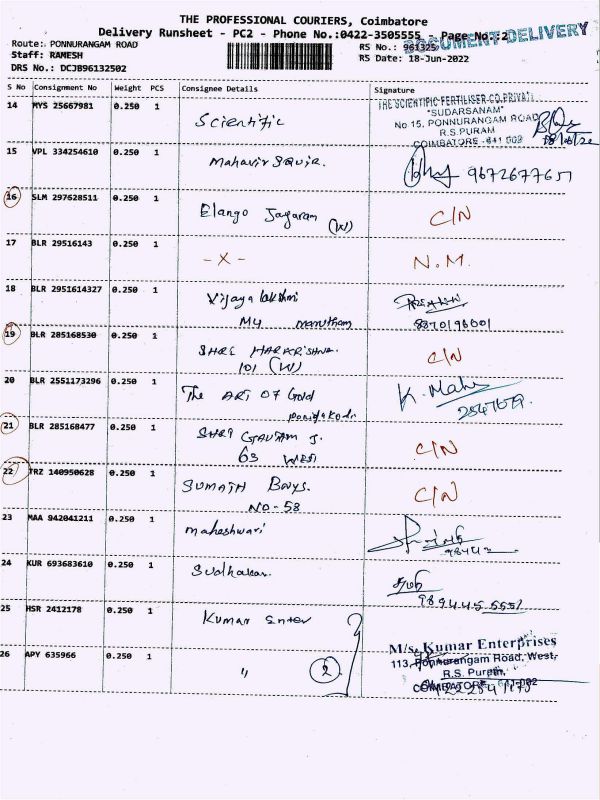 THE PROFESSIONAL COURIERS, Coimbatore
Delivery Runsheet - PC2 - Phone No.:0422-3505555 - Page No.:2
DOCUMENT DELIVERY
Route: PONNURANGAM ROAD
RS No.: 961325
Staff: RAMESH
RS Date: 18-Jun-2022
DRS No.: DCJB96132502
S No Consignment No Weight PCS Consignee Details Signature
14 MYS 25667981 0.250 1 Scientific
THE SCIENTIFIC FERTILISER CO.PRIVATE
"SUDARSANAM"
No 15, PONNURANGAM ROAD
R.S.PURAM
COIMBATORE - 641 002
15 VPL 334254610 0.250 1 Mahavir Squir. 9672677651
16 SLM 297628511 0.250 1 Elango Jayaram (W) C/N
17 BLR 29516143 0.250 1 - X - N.M.
18 BLR 2951614327 0.250 1 Vijayalakshmi
My marutham 8870196001
19 BLR 285168530 0.250 1 SHRE HARAKRISHNA.
101 (W) C/N
20 BLR 2551173296 0.250 1 The ART OF Gold K. Mahe
21 BLR 285168477 0.250 1 SHRI GAUTAM J.
63 WEST C/N
22 TRZ 140950628 0.250 1 SUMATH Bays.
NO-58 C/N
23 MAA 942041211 0.250 1 maheshwari
24 KUR 693683610 0.250 1 Sudhakar.
25 HSR 2412178 0.250 1 Kumar Enter
M/s. Kumar Enterprises
113, Ponnurangam Road, West,
R.S. Puram,
COIMBATORE - 641 002
26 APY 635966 0.250 1 " 2